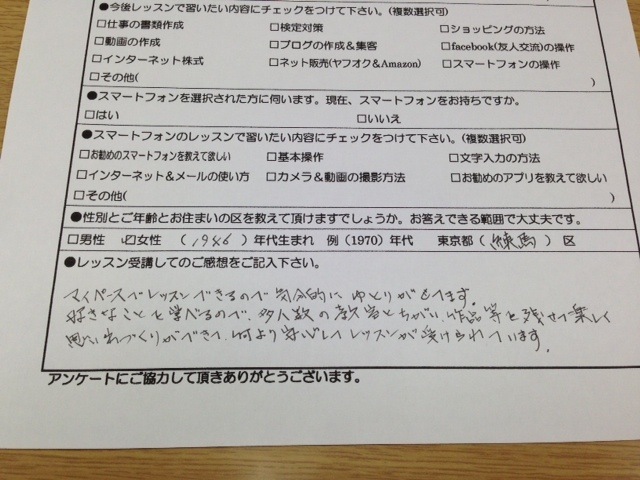 ●今後レッスンで習いたい内容にチェックをつけて下さい。(複数選択可)
□仕事の書類作成 □検定対策 □ショッピングの方法
□動画の作成 □ブログの作成＆集客 □facebook(友人交流)の操作
□インターネット株式 □ネット販売(ヤフオク＆Amazon) □スマートフォンの操作
□その他( )
●スマートフォンを選択された方に伺います。現在、スマートフォンをお持ちですか。
□はい □いいえ
●スマートフォンのレッスンで習いたい内容にチェックをつけて下さい。(複数選択可)
□お勧めのスマートフォンを教えて欲しい □基本操作 □文字入力の方法
□インターネット＆メールの使い方 □カメラ＆動画の撮影方法 □お勧めのアプリを教えて欲しい
□その他( )
●性別とご年齢とお住まいの区を教えて頂けますでしょうか。お答えできる範囲で大丈夫です。
□男性 ☑女性 (1946)年代生まれ 例(1970)年代 東京都(練馬)区
●レッスン受講してのご感想をご記入下さい。
マイペースでレッスンできるので気分的にゆとりがもてます。
好きなことを学べるので、多人数の教室とちがい、作品等を残せて楽しく
思い出づくりができて、何より安心してレッスンが受けられています。
アンケートにご協力して頂きありがとうございます。